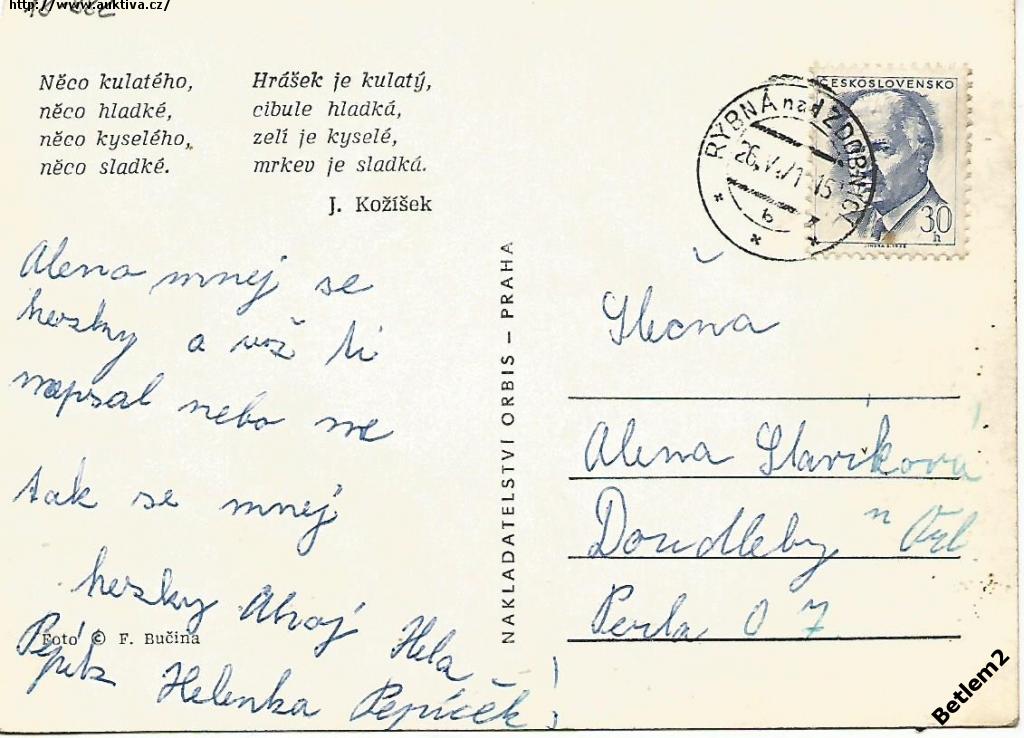 http://www.auktiva.cz/
Něco kulatého,
něco hladké,
něco kyselého,
něco sladké.
Hrášek je kulatý,
cibule hladká,
zelí je kyselé,
mrkev je sladká.
J. Kožíšek
Alena mnej se
hezky a už ti
napsal nebo ne
tak se mnej
hezky Ahoj Hela
Pepík Helenka Pepíček!
Foto © F. Bučina
NAKLADATELSTVÍ ORBIS – PRAHA
ČESKOSLOVENSKO
30 h
RYBNÁ nad ZDOBNICÍ
b
Slečna
Alena Slavíková
Doudleby n Orl
Perla 07
Betlem2